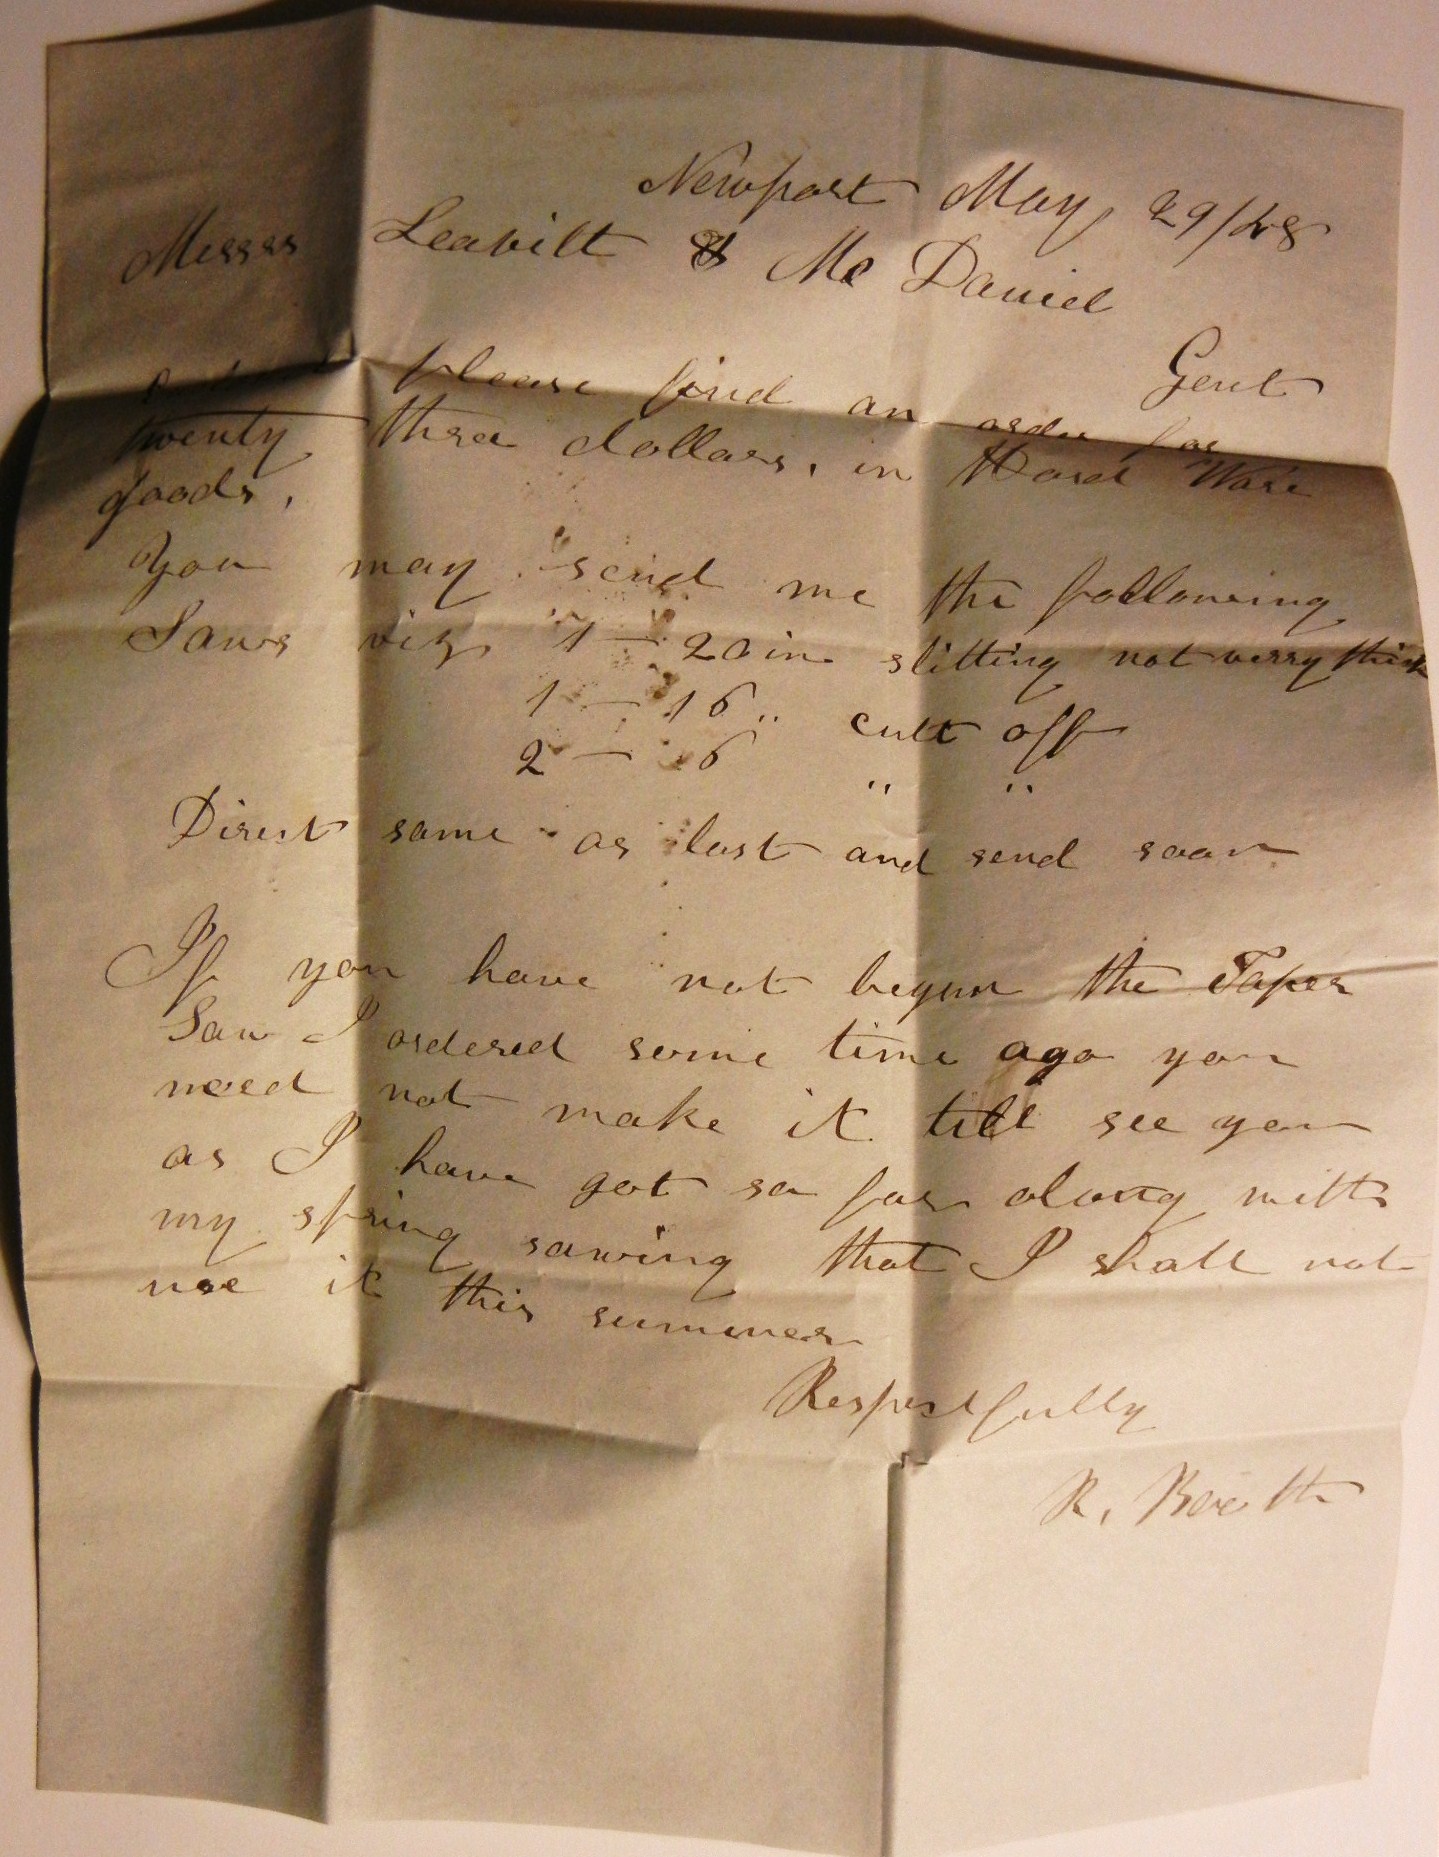 Newport May 29/48
Messrs Leavitt & Mc Daniel
Gent
please find an order for
twenty three dollars, in Hard Ware
goods,
You may send me the following
Saws viz 1 — 20 in slitting not verry thick
1 — 16 " cutt off
2 — 6 " "
Direct same as last and send soon
If you have not begun the Taper
Saw I ordered some time ago you
need not make it till see you
as I have got so far along with
my spring sawing that I shall not
use it this summer
Respectfully
R. Booth